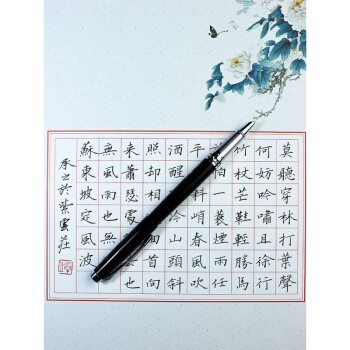 莫聽穿林打葉聲
何妨吟嘯且徐行
竹杖芒鞋輕勝馬
怕一蓑煙雨任
平料峭春風吹
酒醒冷山頭斜
照却相首向
来蕭瑟處也
無風雨也無
蘇東坡定風波
承之於紫雲莊